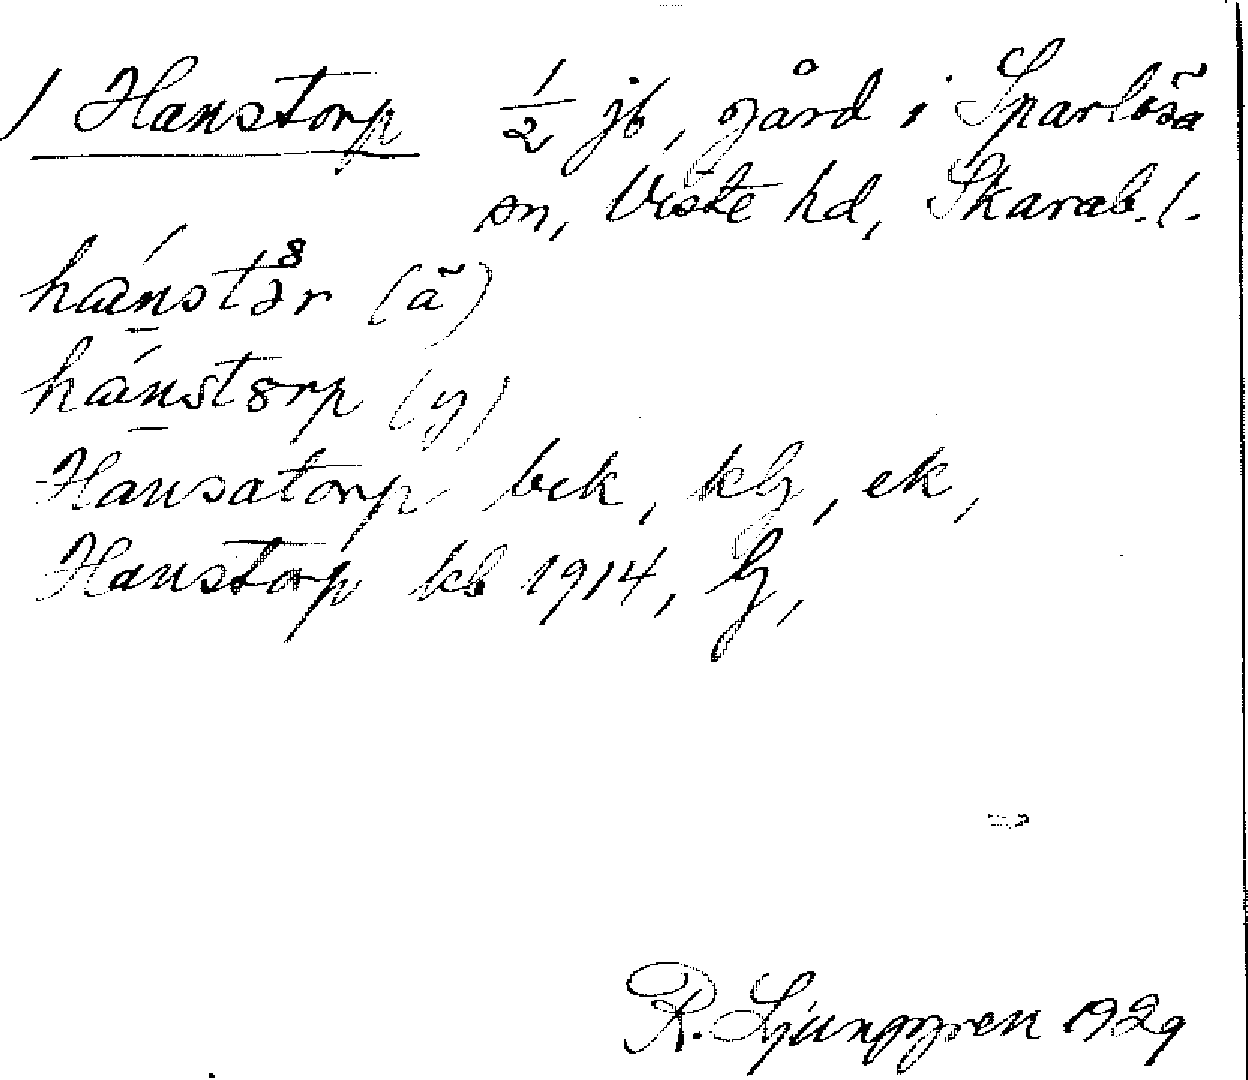 / Hanstorp ½ jb, gård i Sparlösa
sn, Viste hd, Skarab. l.
hánstər (ã)
hánst8rp (y)
Hansatorp bck, klg, ek,
Hanstorp kb 1914, lg,
R. Ljunggren 1929